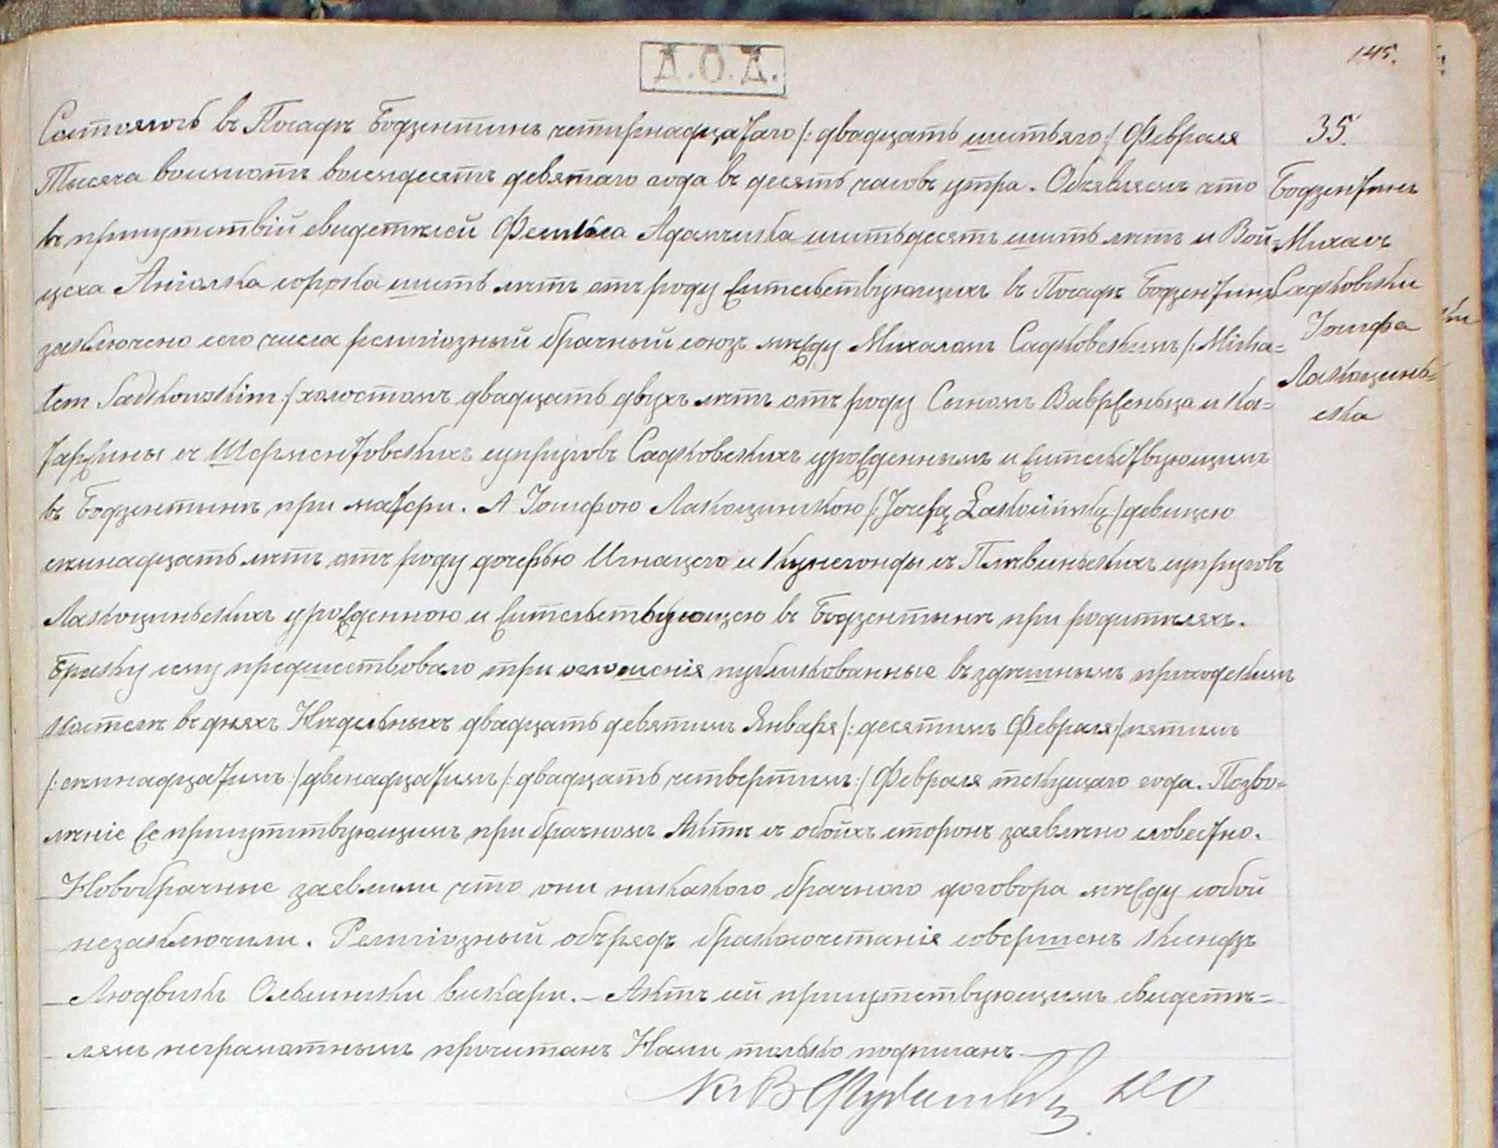 А.О.Д.
145.
Состоялось въ Посадѣ Бодзентинъ четырнадцатаго /: двадцать шестьаго / Февраля
35.
Тысяча восемсотъ восемдесятъ девятаго года въ десять часовъ утра. Объявляемъ что
Бодзентинъ
въ присутствій свидетелей Феликса Адамчика шестьдесятъ шесть летъ и Вой=
Михалъ
цеха Ангалка сорока шесть летъ отъ роду жительствующихъ въ Посадѣ Бодзентинѣ
Садковски
заключено сего числа религіозный брачный союзъ между Михаломъ Садковскимъ /: Micha=
Іозефа
łem Sadkowskim :/ холостымъ двадцать двухъ летъ отъ роду Сыномъ Ваврженьца и Ка=
Лакоцинь=
ска
таржины съ Шерментовскихъ супруговъ Садковскихъ урожденнымъ и жительствующимъ
въ Бодзентинѣ при матери. А Іозефою Лакоцинскою /: Józefą Łakocińską / девицею
семнадцать летъ отъ роду дочерью Игнацего и Кунегонды съ Плевиньскихъ супруговъ
Лакоциньскихъ урожденною и жительствующею въ Бодзентинѣ при родителяхъ.
Браку сему предшествовало три оглошенія публикованные въ здешнымъ приходскимъ
костеле въ дняхъ Недельныхъ двадцать девятымъ Января /: десятымъ Февраля / пятымъ
/: семнадцатымъ :/ двенадцатымъ /: двадцать четвертымъ :/ Февраля текущаго года. Позво=
леніе же присутствующимъ при брачномъ Акте съ обойхъ сторонъ заявлено словестно.
Новобрачные заявлили что они никакого брачного договора между собой
незаключили. Религіозный обрядъ бракосочетанія совершенъ ксендзъ
Людвикъ Ольшински викари. – Актъ сій присутствующимъ свидете=
лямъ неграмотнымъ прочитанъ Нами только подписанъ